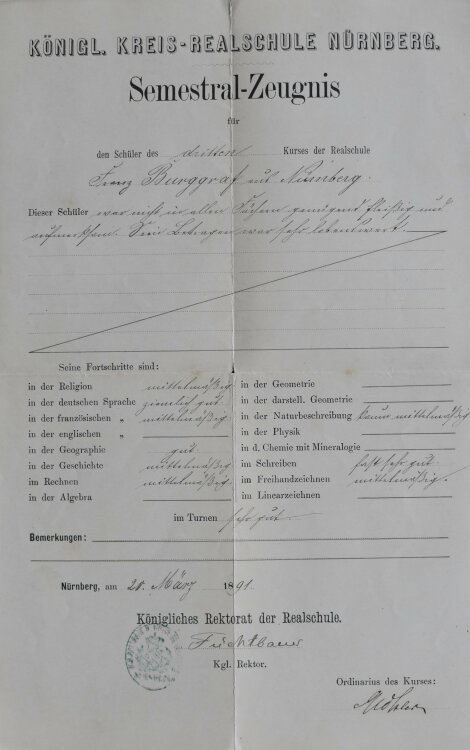 KÖNIGL. KREIS-REALSCHULE NÜRNBERG.
Semestral-Zeugnis
für
den Schüler des dritten Kurses der Realschule
Franz Burggraf aus Nürnberg.
Dieser Schüler war nicht in allen Fächern genügend fleißig und
aufmerksam. Sein Betragen war sehr lobenswert.
Seine Fortschritte sind:
in der Religion mittelmäßig
in der deutschen Sprache ziemlich gut
in der französischen „ mittelmäßig
in der englischen „
in der Geographie gut
in der Geschichte mittelmäßig
im Rechnen mittelmäßig
in der Algebra
in der Geometrie
in der darstell. Geometrie
in der Naturbeschreibung kaum mittelmäßig
in der Physik
in d. Chemie mit Mineralogie
im Schreiben fast sehr gut
im Freihandzeichnen mittelmäßig.
im Linearzeichnen
im Turnen sehr gut
Bemerkungen:
Nürnberg, am 20. März 1891.
Königliches Rektorat der Realschule.
Füchtbauer
Kgl. Rektor.
Ordinarius des Kurses: